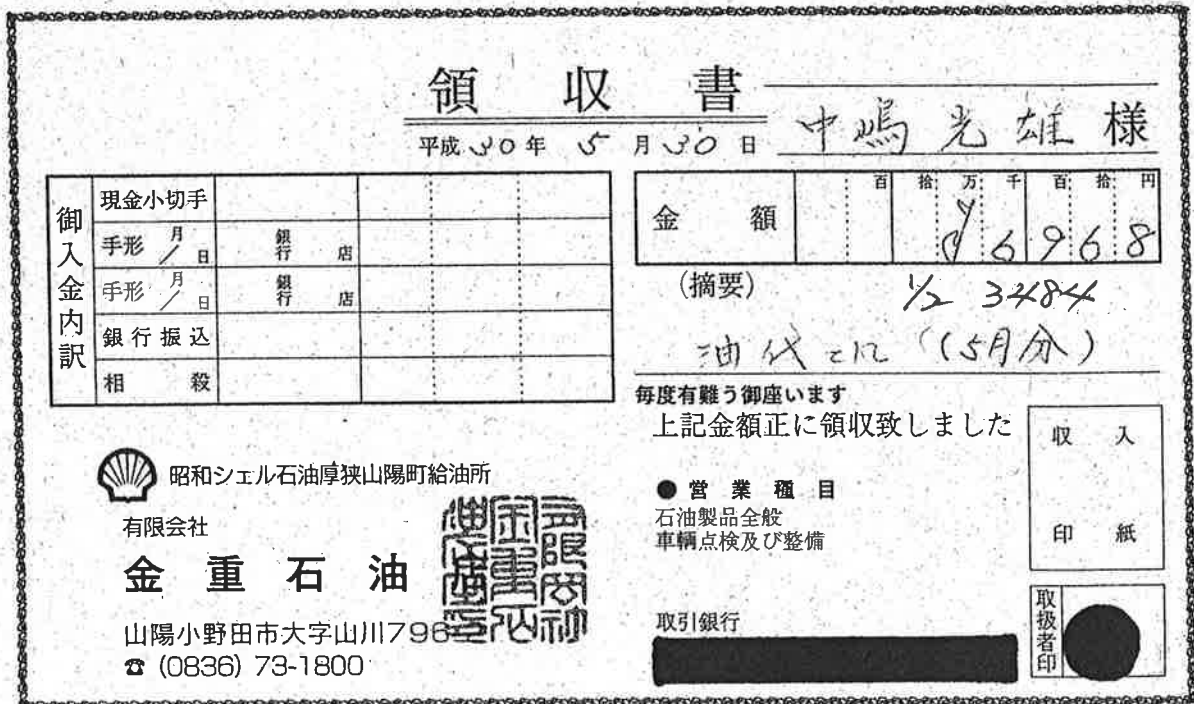 領収書
平成30年 5月30日
中嶋光雄様
御入金内訳
現金小切手
手形 月/日 銀行 店
手形 月/日 銀行 店
銀行振込
相殺
金額
百 拾 万 千 百 拾 円
¥6968
(摘要)
1/2 3484
油代 (5月分)
毎度有難う御座います
上記金額正に領収致しました
収入
印紙
昭和シェル石油厚狭山陽町給油所
有限会社
金重石油店
山陽小野田市大字山川796
☎ (0836) 73-1800
●営業種目
石油製品全般
車輌点検及び整備
取引銀行
取扱者印